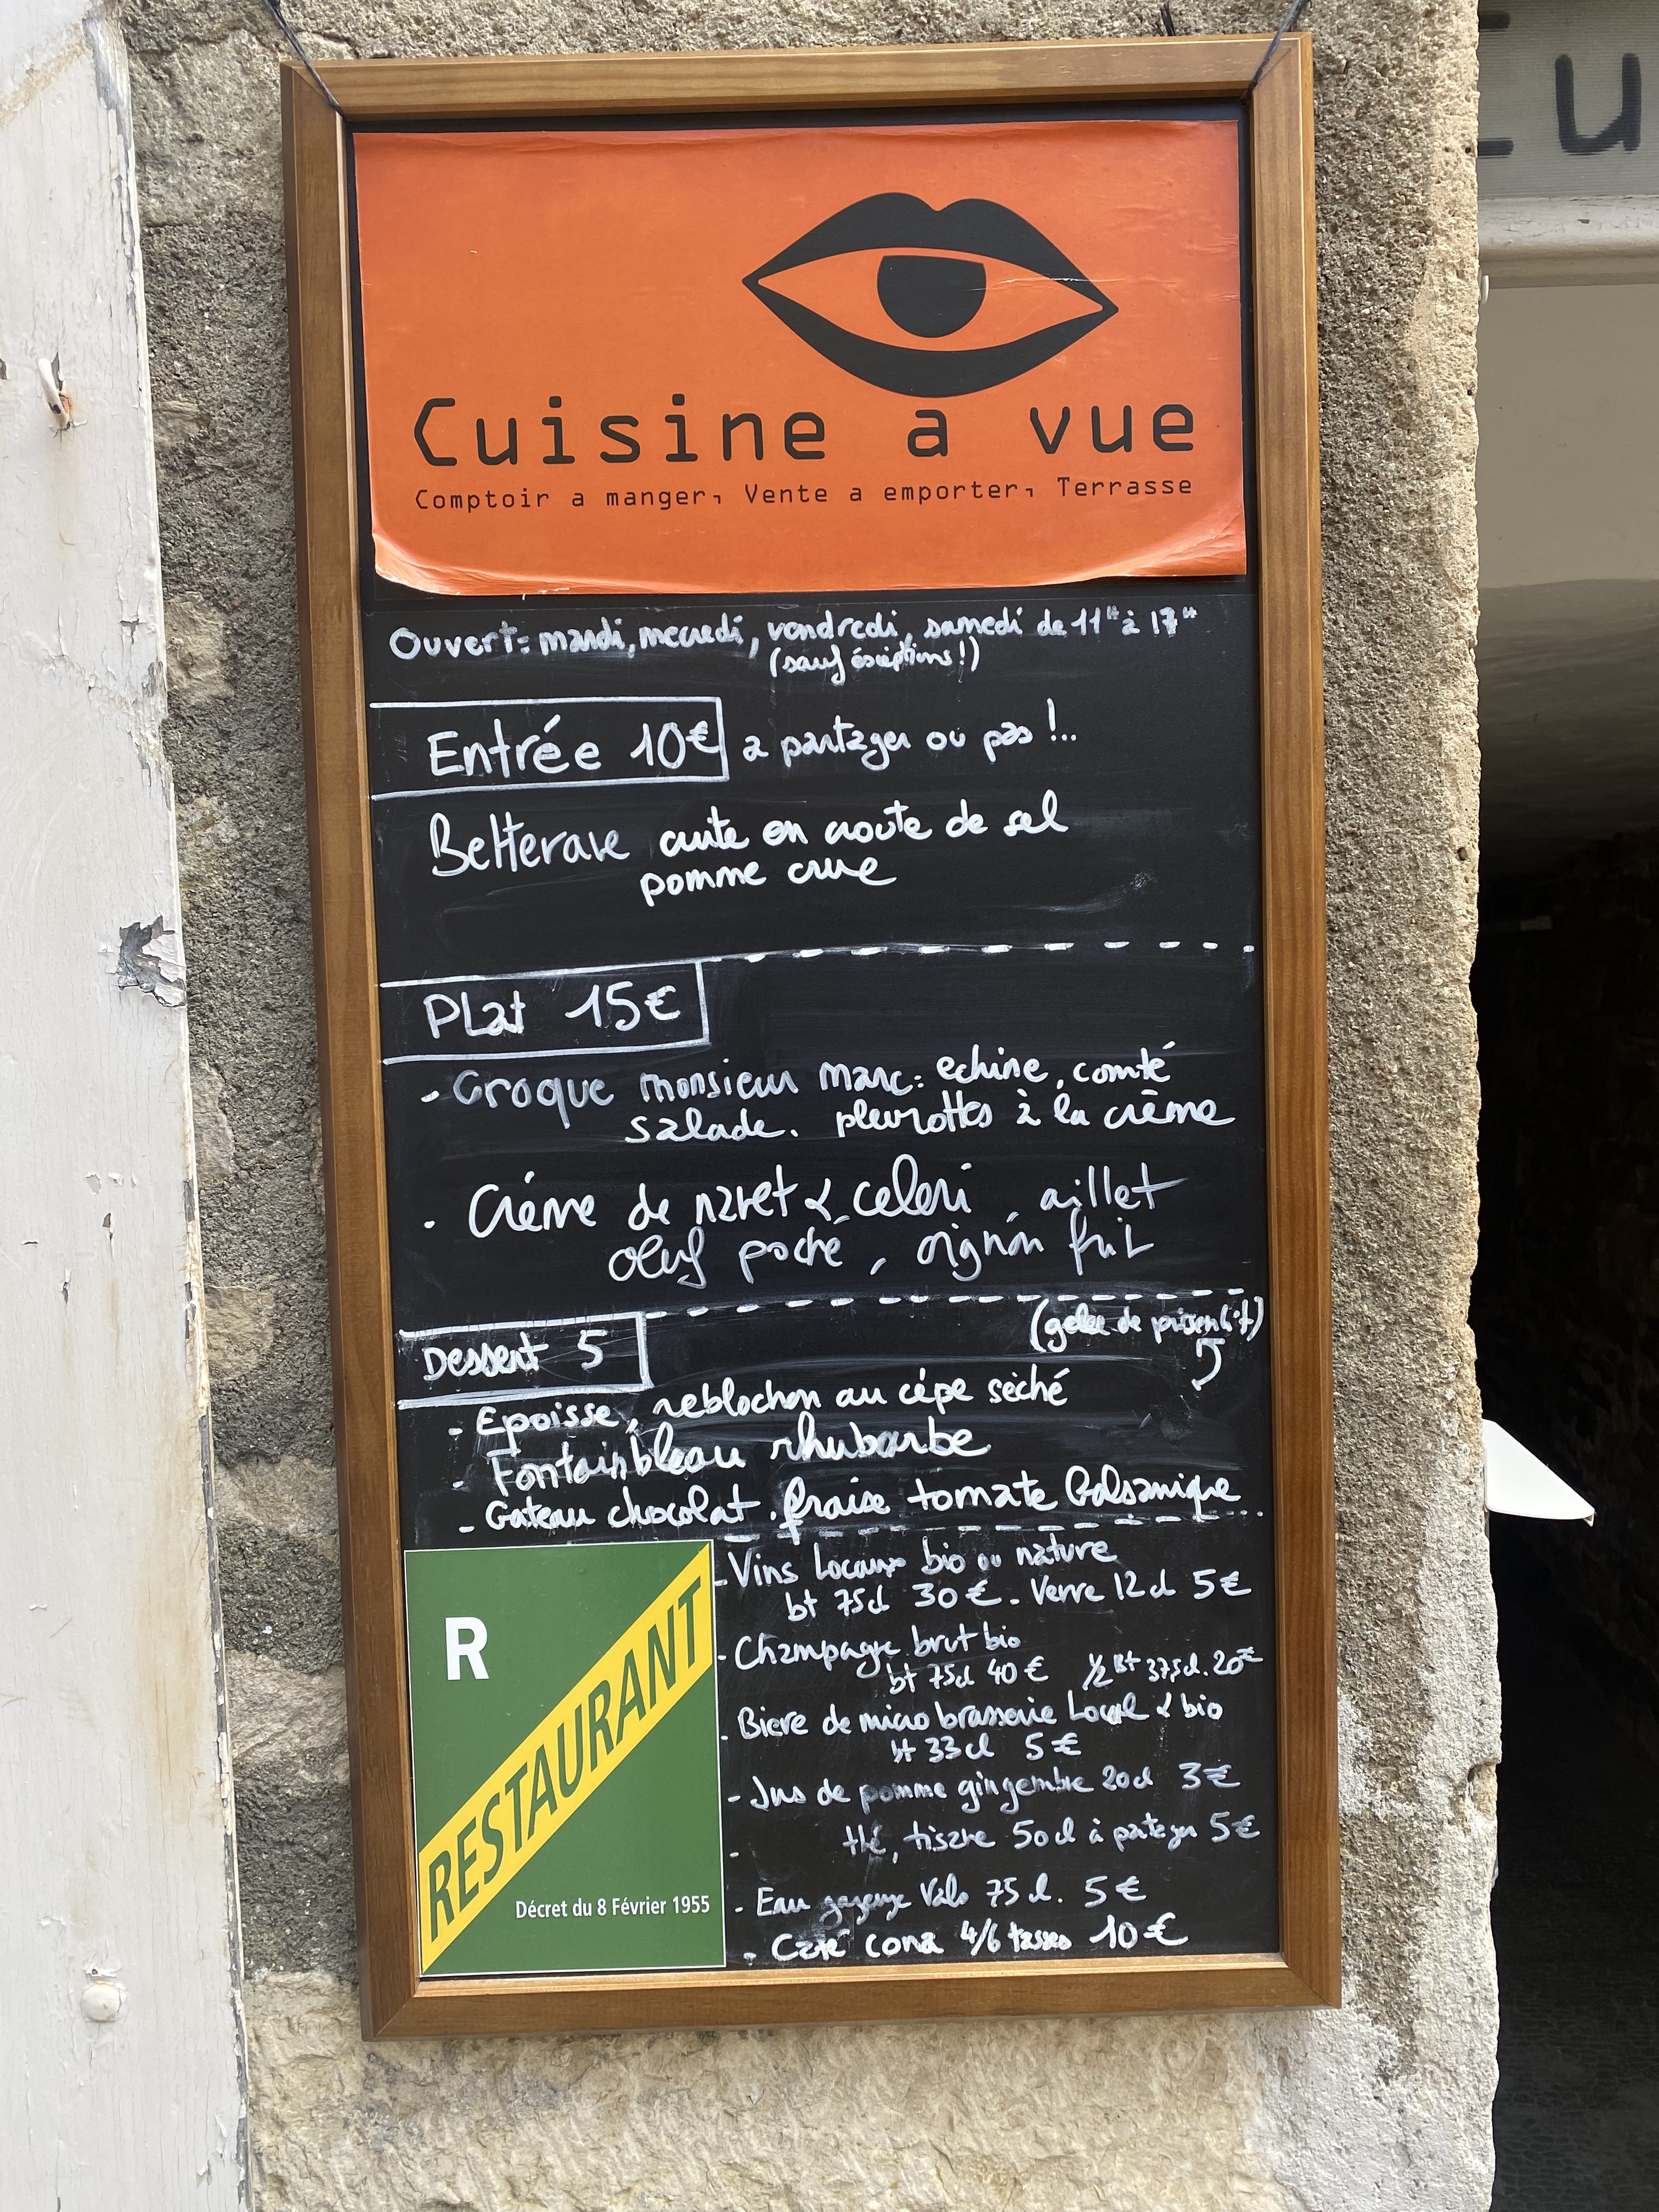 Cu
Cuisine a vue
Comptoir a manger, Vente a emporter, Terrasse
Ouvert: mardi, mecredi, vendredi, samedi de 11H à 17H
(sauf éxceptions!)
Entrée 10€ a partager ou pas !..
Betterave cuite en croute de sel
pomme crue
Plat 15€
- Croque monsieur Marc: echine, comté
salade. pleurottes à la crème
. Crème de navet & celeri, aillet
oeuf poché, oignon frit
Dessert 5
(gelée de pissenlit)
- Epoisse, reblochon au cépe sèché
- Fontainbleau rhubarbe
- Gateau chocolat. fraise tomate balsamique
R
RESTAURANT
Décret du 8 Février 1955
- Vins Locaux bio ou nature
bt 75cl 30€. Verre 12cl 5€
- Champagne brut bio
bt 75cl 40€ 1/2 Bt 375cl. 20€
. Biere de micro brasserie Local & bio
bt 33cl 5€
- Jus de pomme gingembre 20cl 3€
- thé, tisane 50cl à partager 5€
- Eau gazeuse Vals 75cl. 5€
- Café cona 4/6 tasses 10€